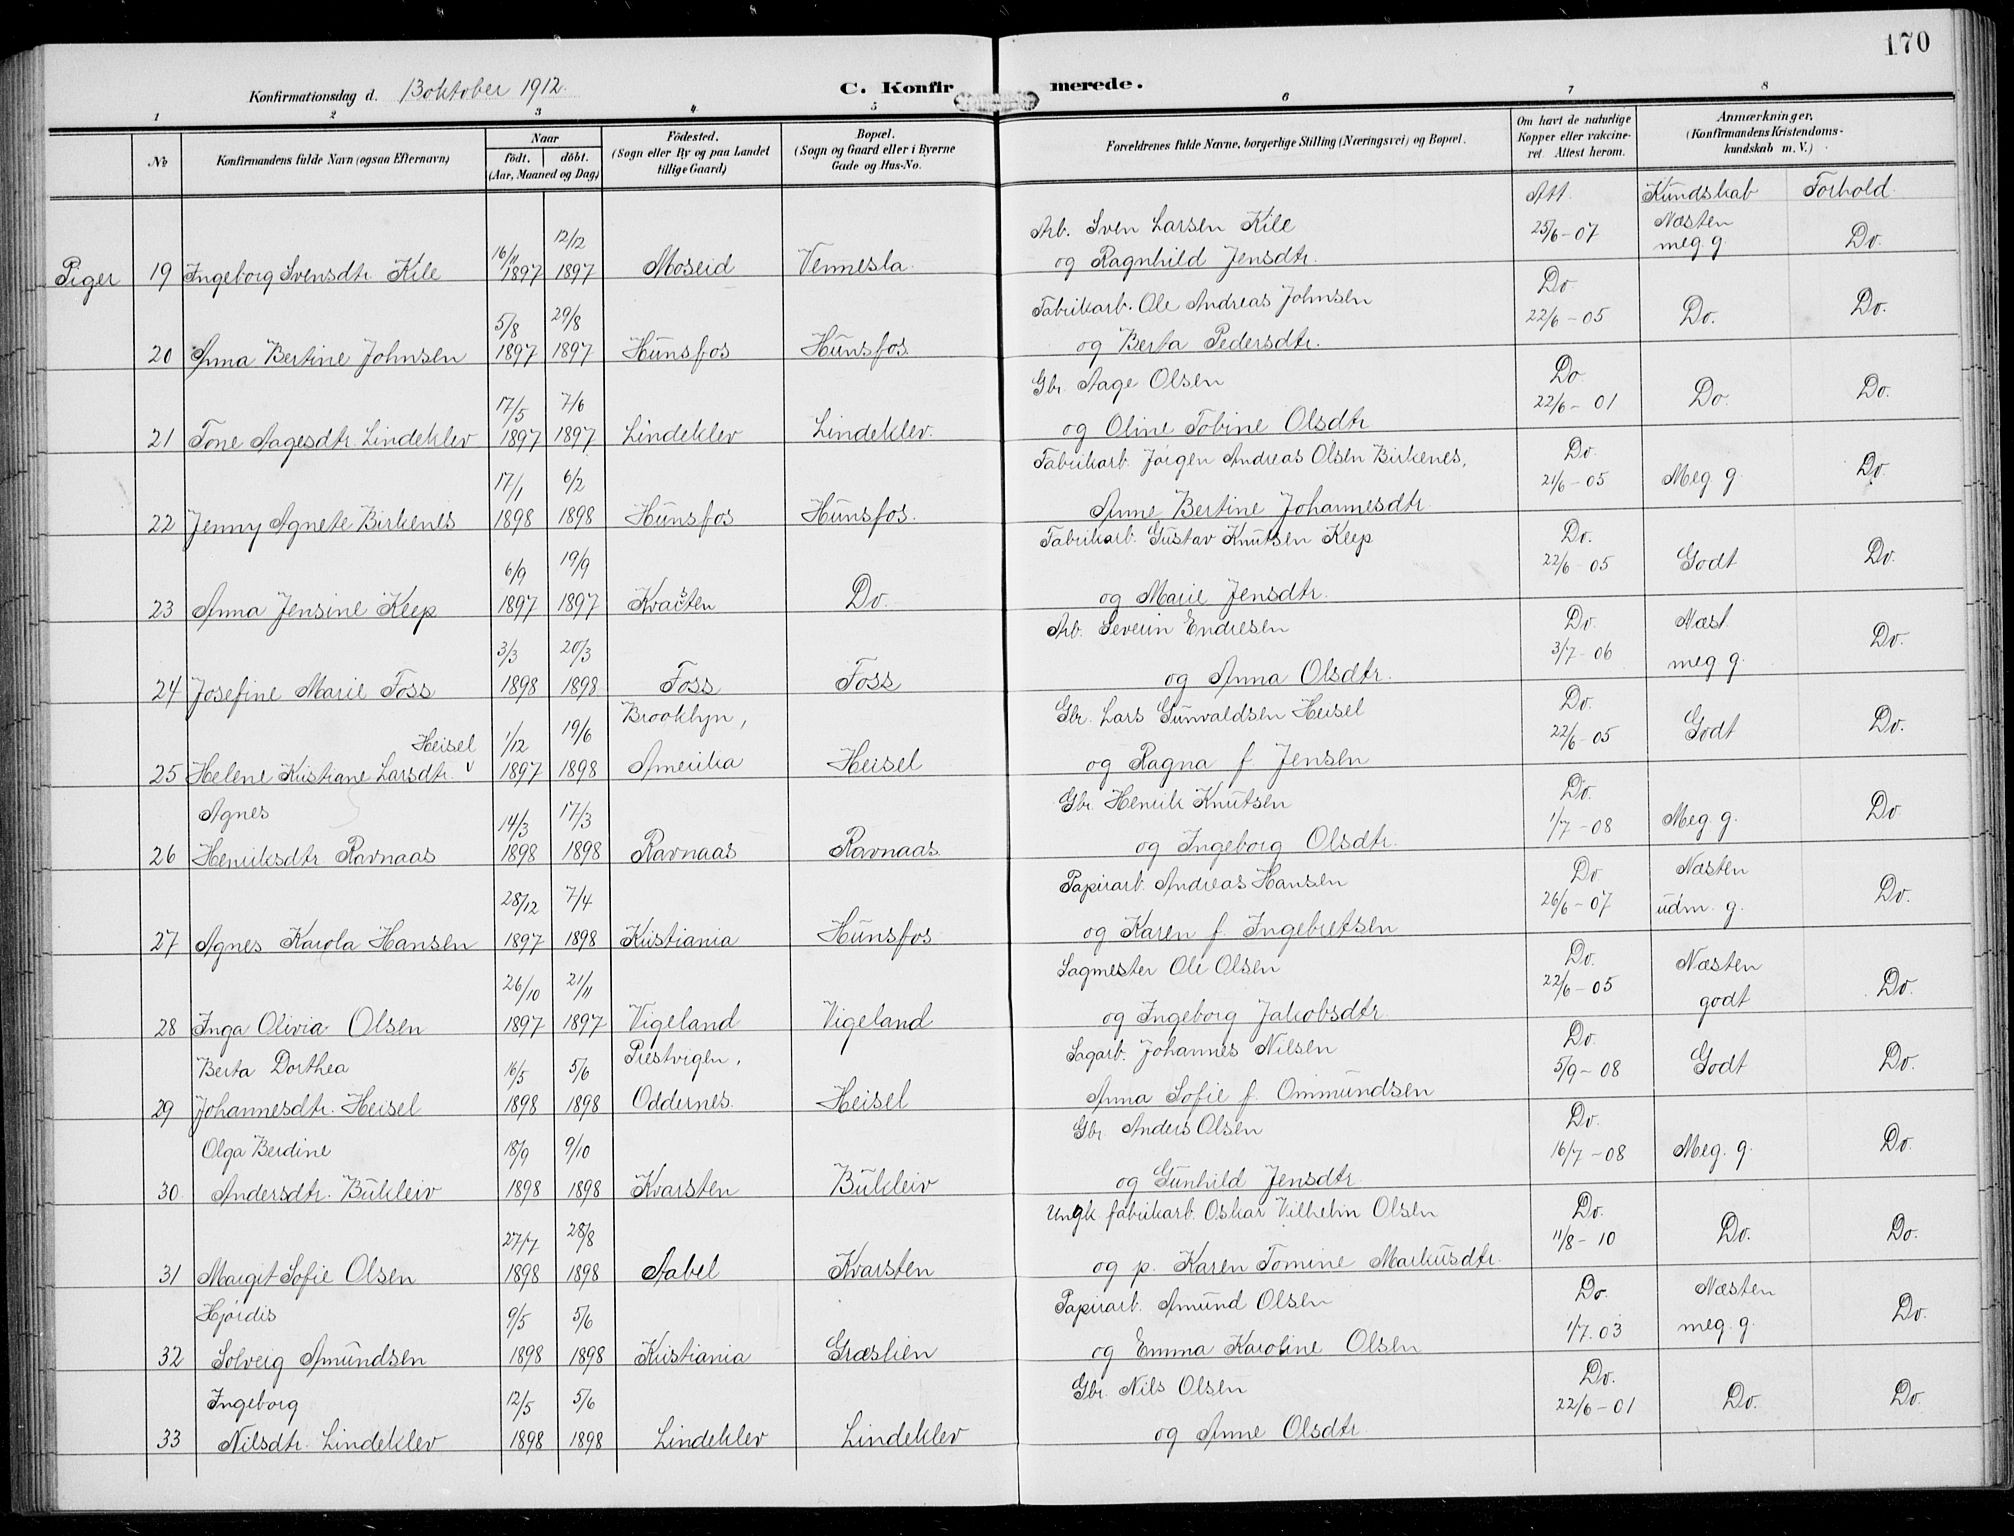 170
Konfirmationsdag d. 13 oktober 1912.
C. Konfirmerede.
1 2 3 4 5 6 7 8
No
Konfirmandens fulde Navn (ogsaa Efternavn)
Naar
født. døbt.
(Aar, Maaned og Dag)
Fødested.
(Sogn eller By og paa Landet
tillige Gaard)
Bopæl.
(Sogn og Gaard eller i Byerne
Gade og Hus-No.
Forældrenes fulde Navne, borgerlige Stilling (Næringsvei) og Bopæl.
Om havt de naturlige
Kopper eller vakcine-
ret Attest herom.
Anmærkninger,
(Konfirmandens Kristendoms-
kundskab m. V.)
Att. Kundskab Forhold.
16/11 12/12 Arb. Sven Larsen Kile 25/6-07 Næsten
Piger 19 Ingeborg Svensdtr. Kile 1897 1897 Moseid Vennesla. og Ragnhild Jensdtr. meg. g. Do.
5/8 29/8 Fabrikarb. Ole Andreas Johnsen Do
20 Anna Bertine Johnsen 1897 1897 Hunsfos Hunsfos. og Berta Pedersdtr. 22/6-05 Do. Do.
17/5 7/6 Gbr. Aage Olsen Do.
21 Tone Aagesdtr. Lindeklev 1897 1897 Lindeklev Lindeklev. og Oline Tobine Olsdtr 22/6-01 Do. Do.
17/1 6/2 Fabrikarb. Jørgen Andreas Olsen Birkenes, Do.
22 Jenny Agnete Birkenes 1898 1898 Hunsfos Hunsfos. Anne Bertine Johannesdtr. 21/6-05 Meg. g. Do
6/9 19/9 Fabrikarb. Gustav Knutsen Keep Do.
23 Anna Jensine Keep 1897 1897 Kvarsten Do. og Marie Jensdtr. 22/6-05 Godt Do.
3/3 20/3 Arb. Severin Endresen Do. Næst
24 Josefine Marie Foss 1898 1898 Foss Foss og Anna Olsdtr. 3/7-06 meg g. Do.
Heisel 1/12 19/6 Brooklyn, Gbr. Lars Gunvaldsen Heisel Do.
25 Helene Kristiane Larsdtr. v 1897 1898 Amerika Heisel og Ragna f. Jensen 22/6-05 Godt Do.
Agnes 14/3 17/3 Gbr. Henrik Knutsen Do.
26 Henriksdtr Ravnaas 1898 1898 Ravnaas Ravnaas. og Ingeborg Olsdtr. 1/7-08 Meg. g. Do.
28/12 7/4 Papirarb. Andreas Hansen Do Næsten
27 Agnes Karola Hansen 1897 1898 Kristiania Hunsfos og Karen f. Ingebretsen 26/6-07 udm. g. Do.
26/10 21/11 Sagmester Ole Olsen Do. Næsten
28 Inga Olivia Olsen 1897 1897 Vigeland Vigeland og Ingeborg Jakobsdtr. 22/6-05 godt Do.
Berta Dorthea 16/5 5/6 Prestvigen, Sagarb. Johannes Nilsen Do.
29 Johannesdtr. Heisel 1898 1898 Oddernes. Heisel Anna Sofie f. Ommundsen 5/9-08 Godt Do.
Olga Berdine 18/9 9/10 Gbr. Anders Olsen Do.
30. Andersdtr. Bukleiv 1898 1898 Kvarsten Bukleiv og Gunhild Jensdtr. 16/7-08 Meg. g. Do.
27/7 28/8 Ungk. fabrikarb. Oskar Vilhelm Olsen Do.
31 Margit Sofie Olsen 1898 1898 Aabel Kvarsten og p. Karen Tomine Markusdtr. 11/8-10 Do. Do.
Hjørdis 9/5 5/6 Papirarb. Amund Olsen Do. Næsten
32 Solveig Amundsen 1898 1898 Kristiania Græslien og Emma Karoline Olsen 1/7.03 meg. g. Do.
Ingeborg 12/5 5/6 Gbr. Nils Olsen Do.
33 Nilsdtr. Lindeklev 1898 1898 Lindeklev Lindeklev og Anne Olsdtr 22/6-01 Do. Do.